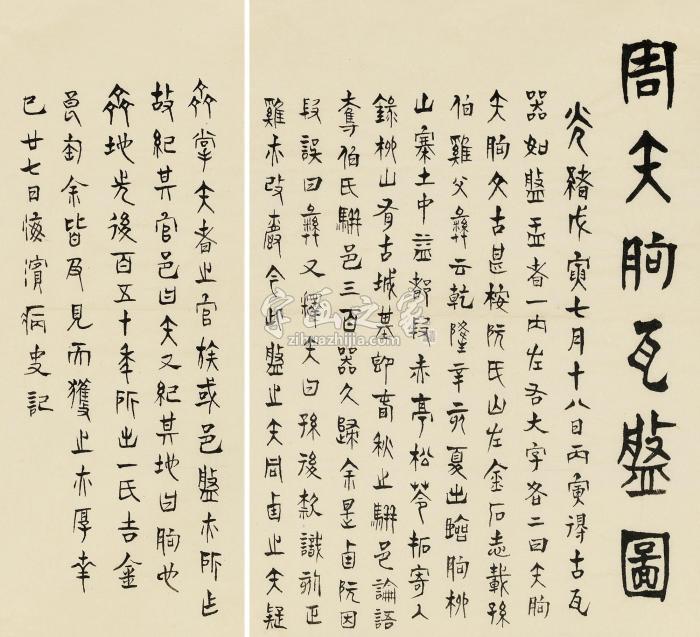 周夫朐瓦盤圖
光緒戊寅七月十八日丙寅得古瓦
器如盤盂者一內左右大字各二曰夫朐
夫朐文古甚桉阮氏山左金石志載孫
伯雞父彝云乾隆辛亥夏出臨朐柳
山寨土中益都段赤亭松苓拓寄入
錄柳山有古城基即春秋之駢邑論語
奪伯氏駢邑三百器久歸余是卣阮因
段誤曰彝又釋夫曰孫後款識訂正
雞亦改今此盤之夫同卣之夫疑
齊掌夫者之官族或邑盤亦所作
故紀其官邑曰夫又紀其地曰朐也
齊地先後百五十年所出一氏吉金
邑封余皆及見而獲之亦厚幸
已廿七日海濱病史記
字画之家
zihuazhijia.com